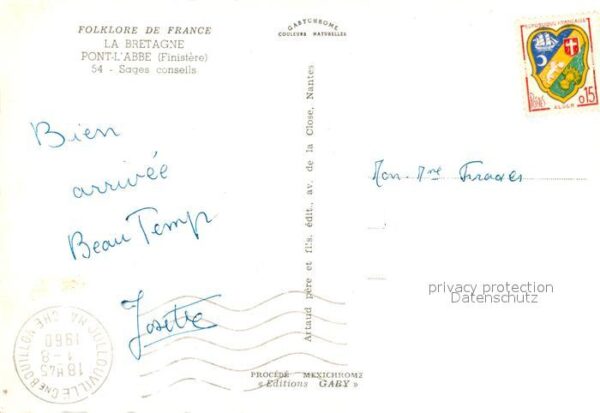 FOLKLORE DE FRANCE
LA BRETAGNE
PONT-L'ABBÉ (Finistère)
54 - Sages conseils
GABYCHROME
COULEURS NATURELLES
RÉPUBLIQUE FRANÇAISE
POSTES
ALGER
0,15
Bien
arrivée
Beau Temps
Josette
Mon. Mme
privacy protection
Datenschutz
Artaud père et fils, édit., av. de la Close, Nantes
JULLOUVILLE Cne BOUILLON
MANCHE
18H45
1-8
1960
PROCÉDÉ MEXICHROME
« Editions GABY »